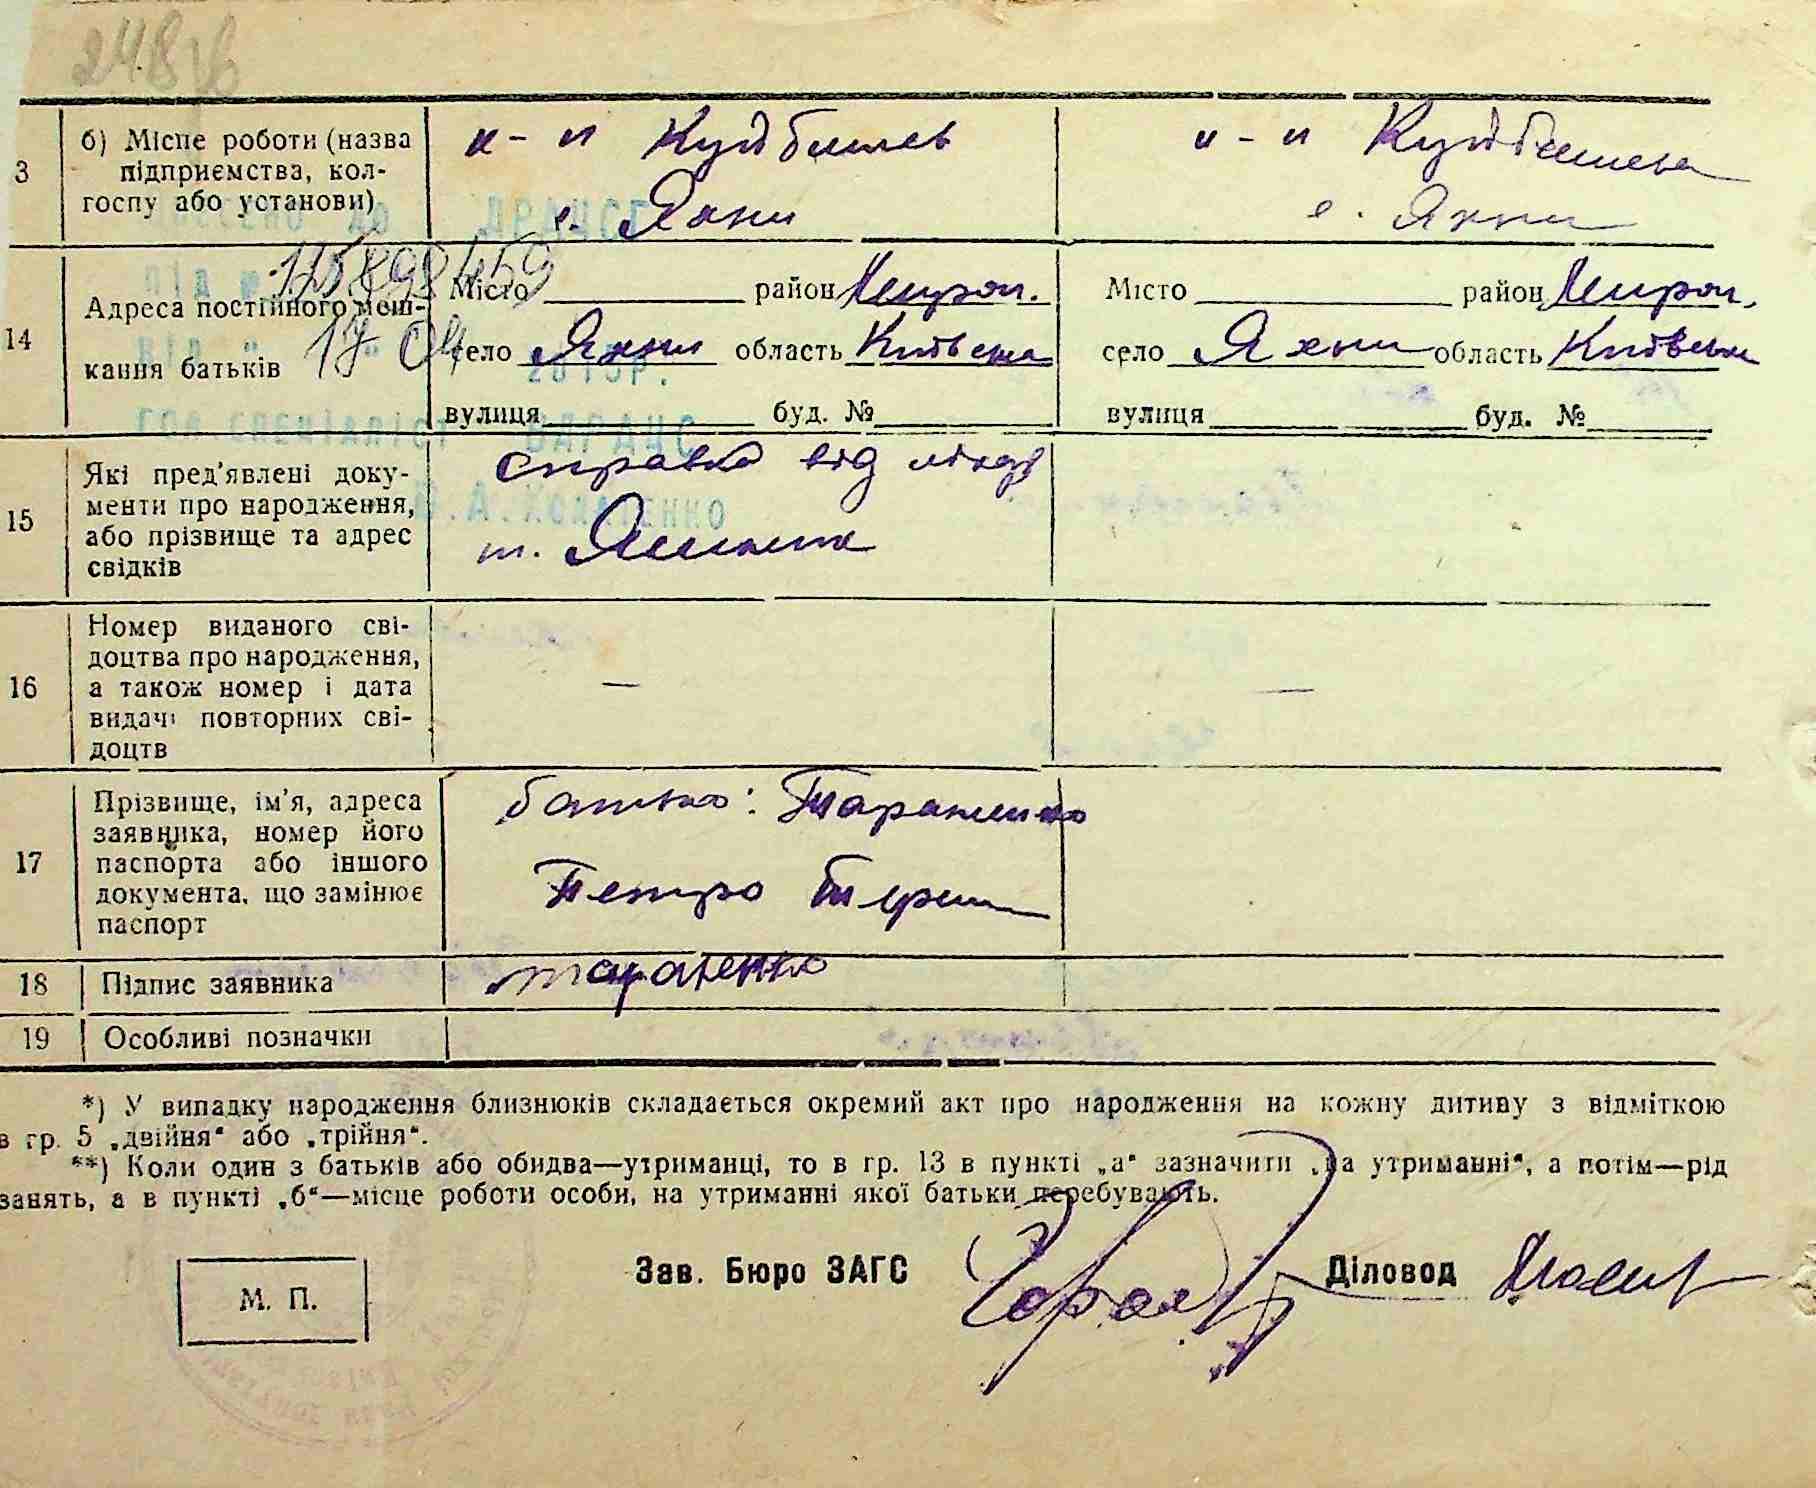 3
б) Місце роботи (назва
підприємства, кол-
госпу або установи)
к-п Куйбишев
с. Яхни
к-п Куйбишева
с. Яхни
14
Адреса постійного меш-
кання батьків
Місто район Мирон.
село Яхни область Київська
вулиця буд. №
Місто район Мирон.
село Яхни область Київськ
вулиця буд. №
15
Які пред'явлені доку-
менти про народження,
або прізвище та адрес
свідків
справка від лікар
16
Номер виданого сві-
доцтва про народження,
а також номер і дата
видачі повторних сві-
доцтв
—
—
17
Прізвище, ім'я, адреса
заявника, номер його
паспорта або іншого
документа, що замінює
паспорт
батько: Тараненко
Петро
18
Підпис заявника
тараненко
19
Особливі позначки
*) У випадку народження близнюків складається окремий акт про народження на кожну дитину з відміткою
в гр. 5 „двійня“ або „трійня“.
**) Коли один з батьків або обидва—утриманці, то в гр. 13 в пункті „а“ зазначити „на утриманні“, а потім—рід
занять, а в пункті „б“—місце роботи особи, на утриманні якої батьки перебувають.
Зав. Бюро ЗАГС
Діловод
М. П.